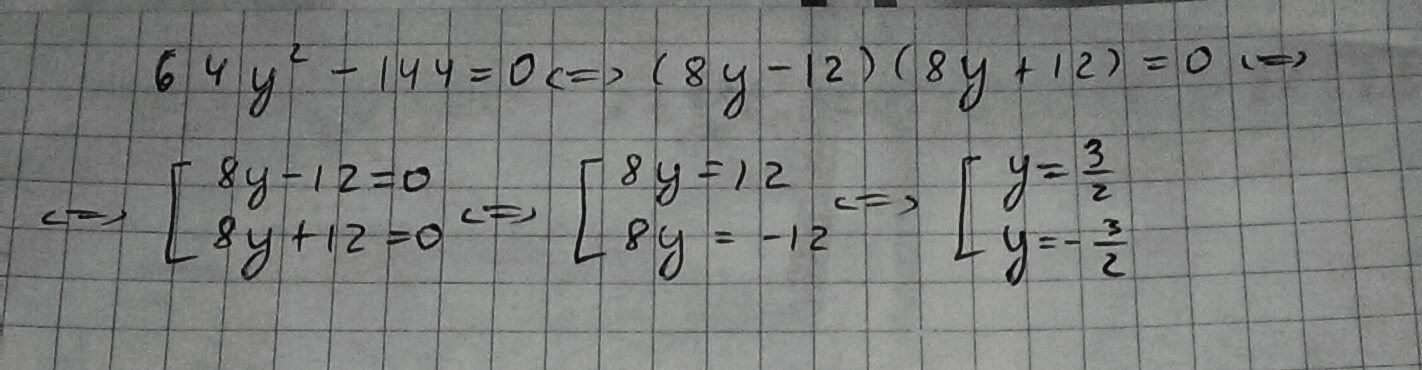 64y² - 144 = 0 <=> (8y - 12)(8y + 12) = 0 <=>
<=> [ 8y - 12 = 0 <=> [ 8y = 12 <=> [ y = 3/2
8y + 12 = 0 8y = -12 y = -3/2